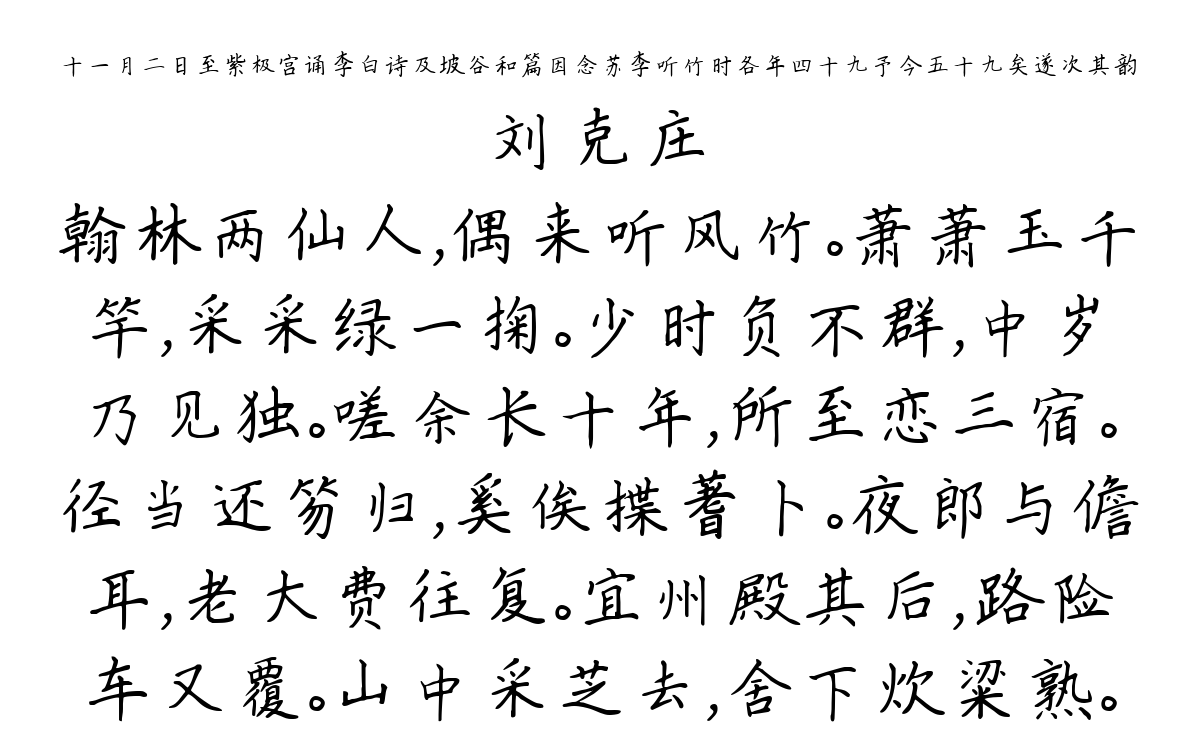 十一月二日至紫极宫诵李白诗及坡谷和篇因念苏李听竹时各年四十九予今五十九矣遂次其韵
刘克庄
翰林两仙人,偶来听风竹。萧萧玉千
竿,采采绿一掬。少时负不群,中岁
乃见独。嗟余长十年,所至恋三宿。
径当还笏归,奚俟揲蓍卜。夜郎与儋
耳,老大费往复。宜州殿其后,路险
车又覆。山中采芝去,舍下炊粱熟。